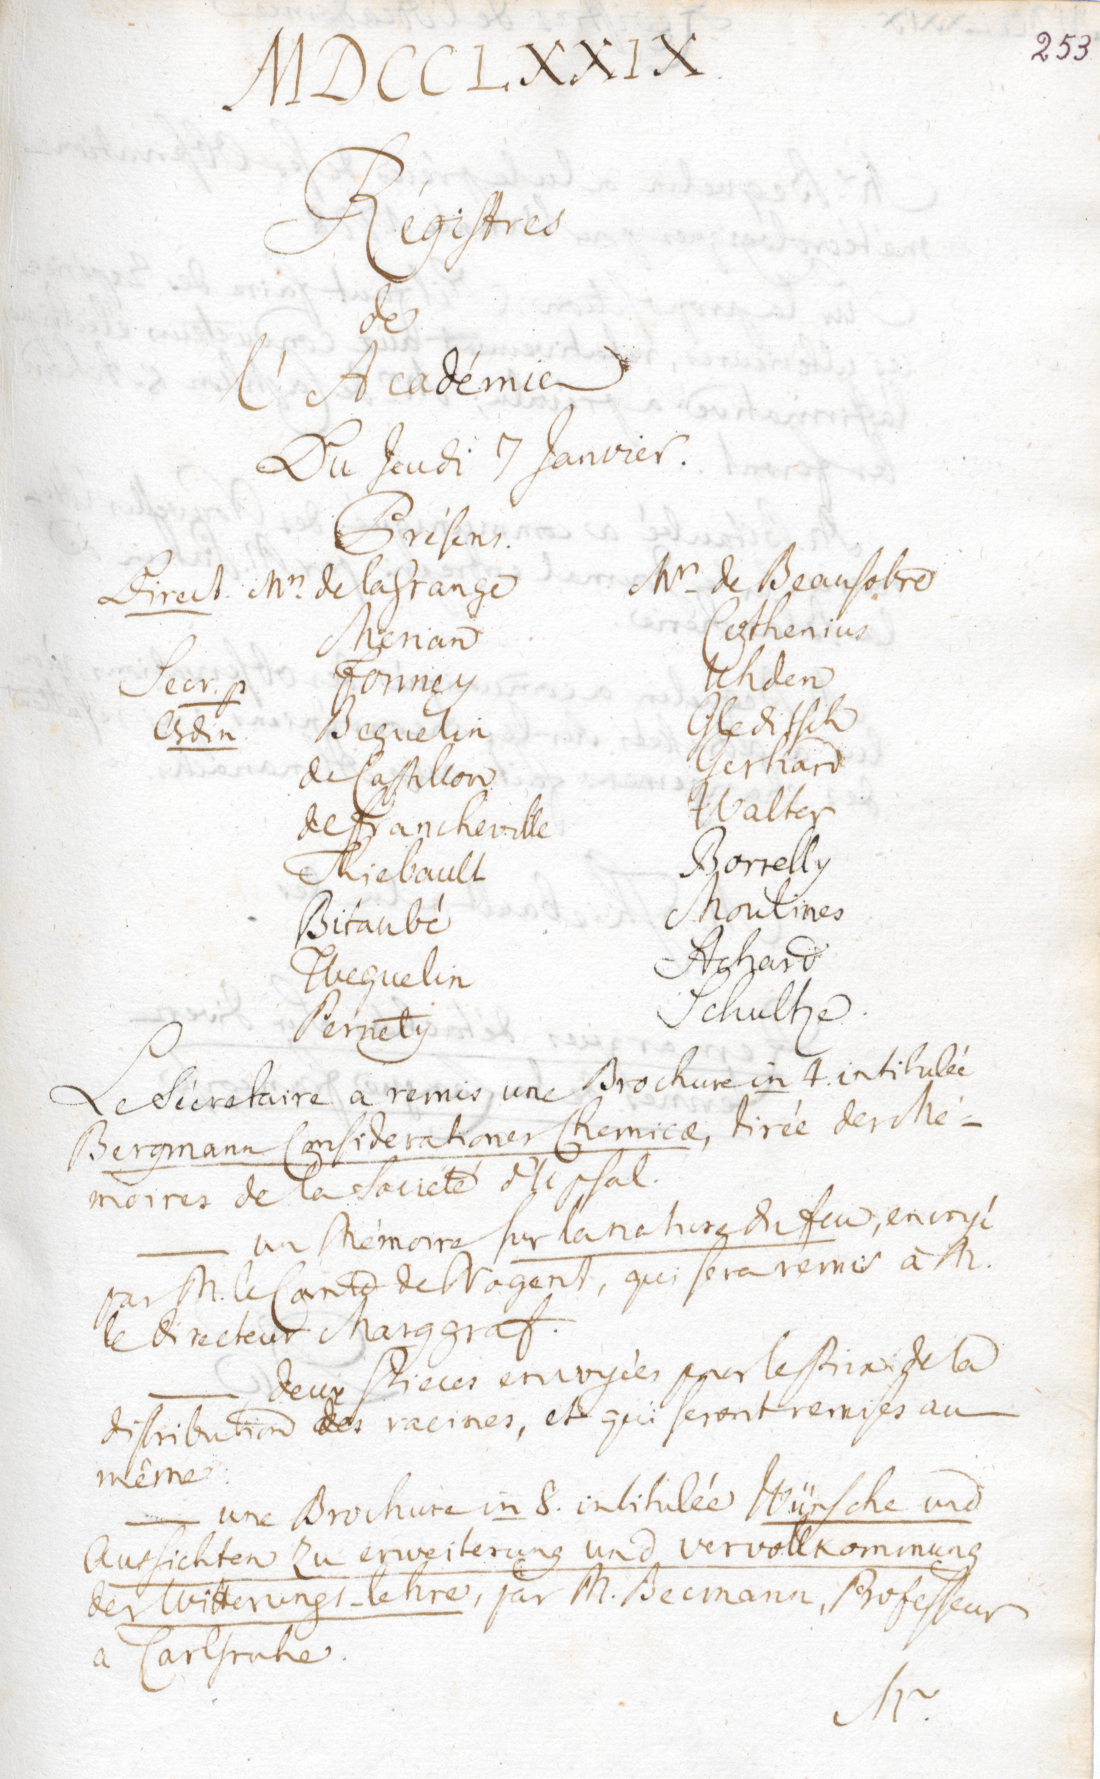 253
MDCCLXXIX.
Régistres
de
l'Académie
Du Jeudi 7 Janvier.
Présens.
Direct. Mrs. de la Grange
Merian
Secr. p. Formey
Ordin. Beguelin
de Castillon
de Francheville
Thiebault
Bitaubé
Weguelin
Pernety
Mrs. de Beausobre
Cothenius
Uhden
Gleditsch
Gerhard
Walter
Borrelly
Moulines
Achard
Schultze.
Le Sécretaire a remis une Brochure in 4. intitulée
Bergmann Considerationes Chemicæ, tirée des Mé-
moires de la Société d'Upsal.
— un Mémoire sur la nature du feu, envoyé
par M. le Comte de Nogent, qui sera remis à M.
le directeur Marggraf.
— deux Pieces envoyées pour le Prix de la
distribution des racines, et qui seront remises au
même.
— une Brochure in 8. intitulée Wünsche und
Aussichten zu erweiterung und vervollkommung
der Witterungs-lehre, par M. Becmann, Professeur
a Carlsruhe.
Mr.